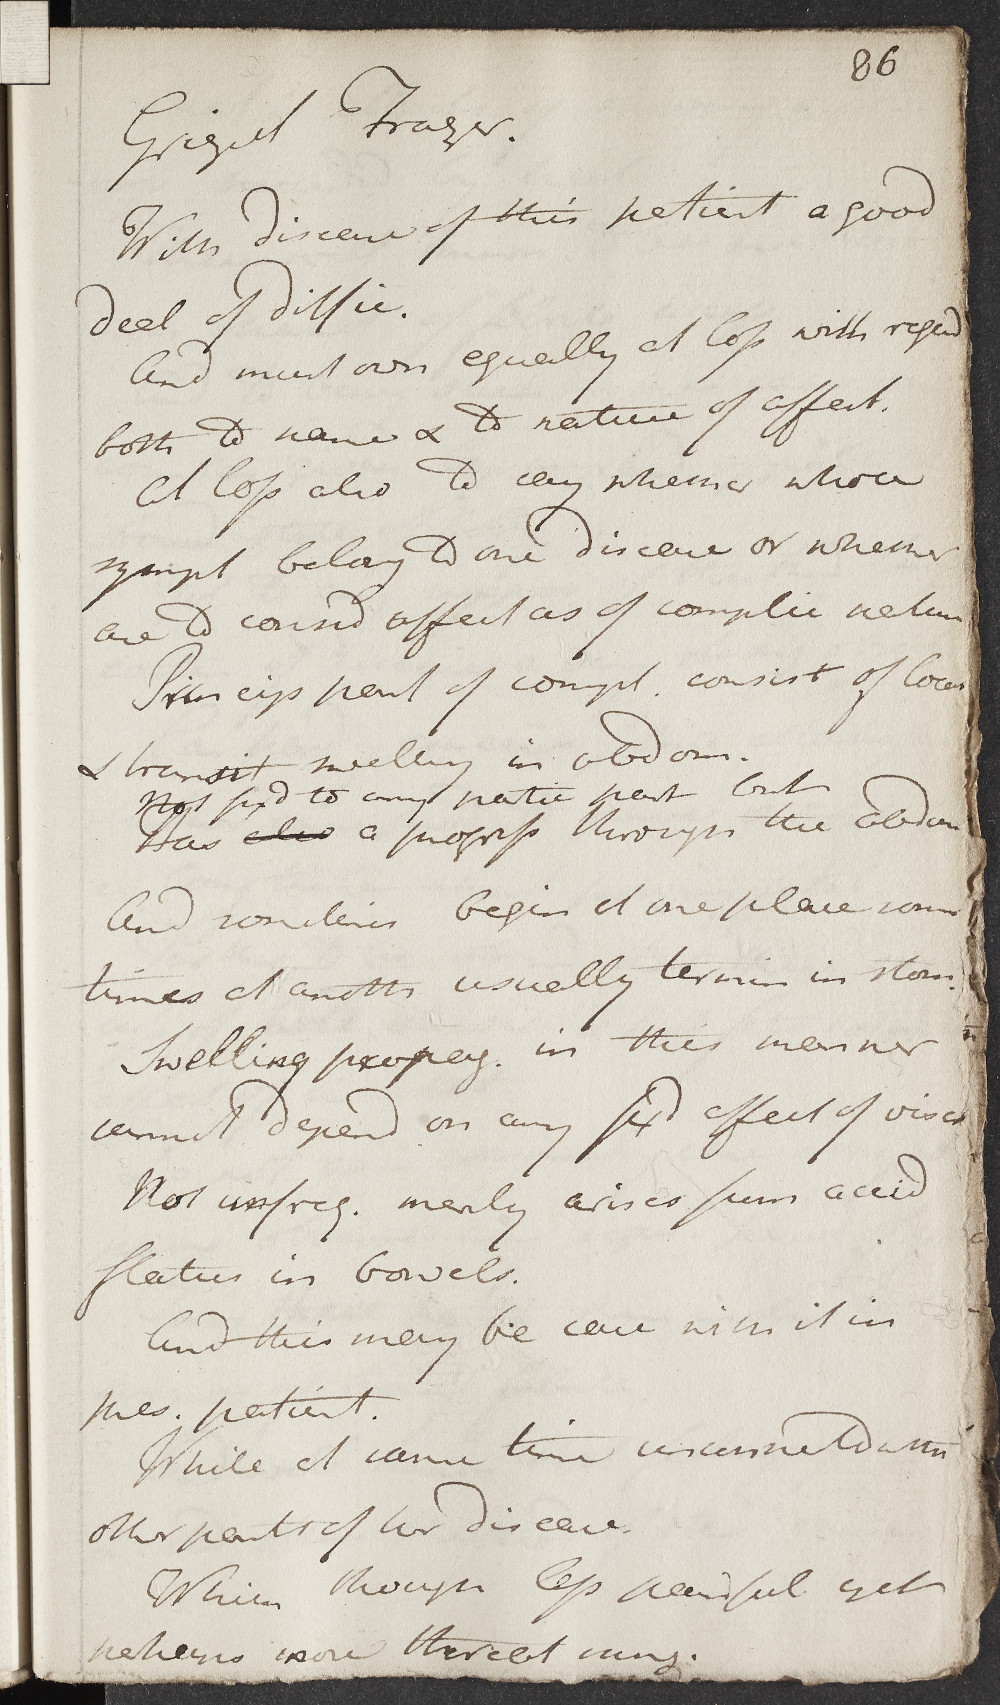 86
Grizel Frazer.
With disease of this patient a good
deal of diffic.
And must own equally at loss with regard
both to name & to nature of affect.
At loss also to say whether whole
sympt belong to one disease or whether
are to consid affect as of complic natur
Princip part of compl. consist of loca
& transit swelling in abdom.
Not fixd to any partic part but
Has also a progress through the abdom
And sometimes begin at one place some
times at anoth usually termin in stom.
Swelling propag. in this manner
cannot depend on any fixd affect of visce
Not unfreq. merely arises from accid
flatus in bowels.
And this may be case with it in
pres. patient.
While at same time unconnectd with
other parts of her disease.
Which though less painful yet
perhaps more threatning.